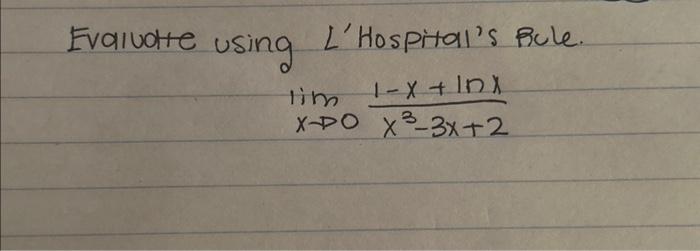 Evaluate using L'Hospital's Rule.
lim x→0 (1-x+lnx)/(x³-3x+2)